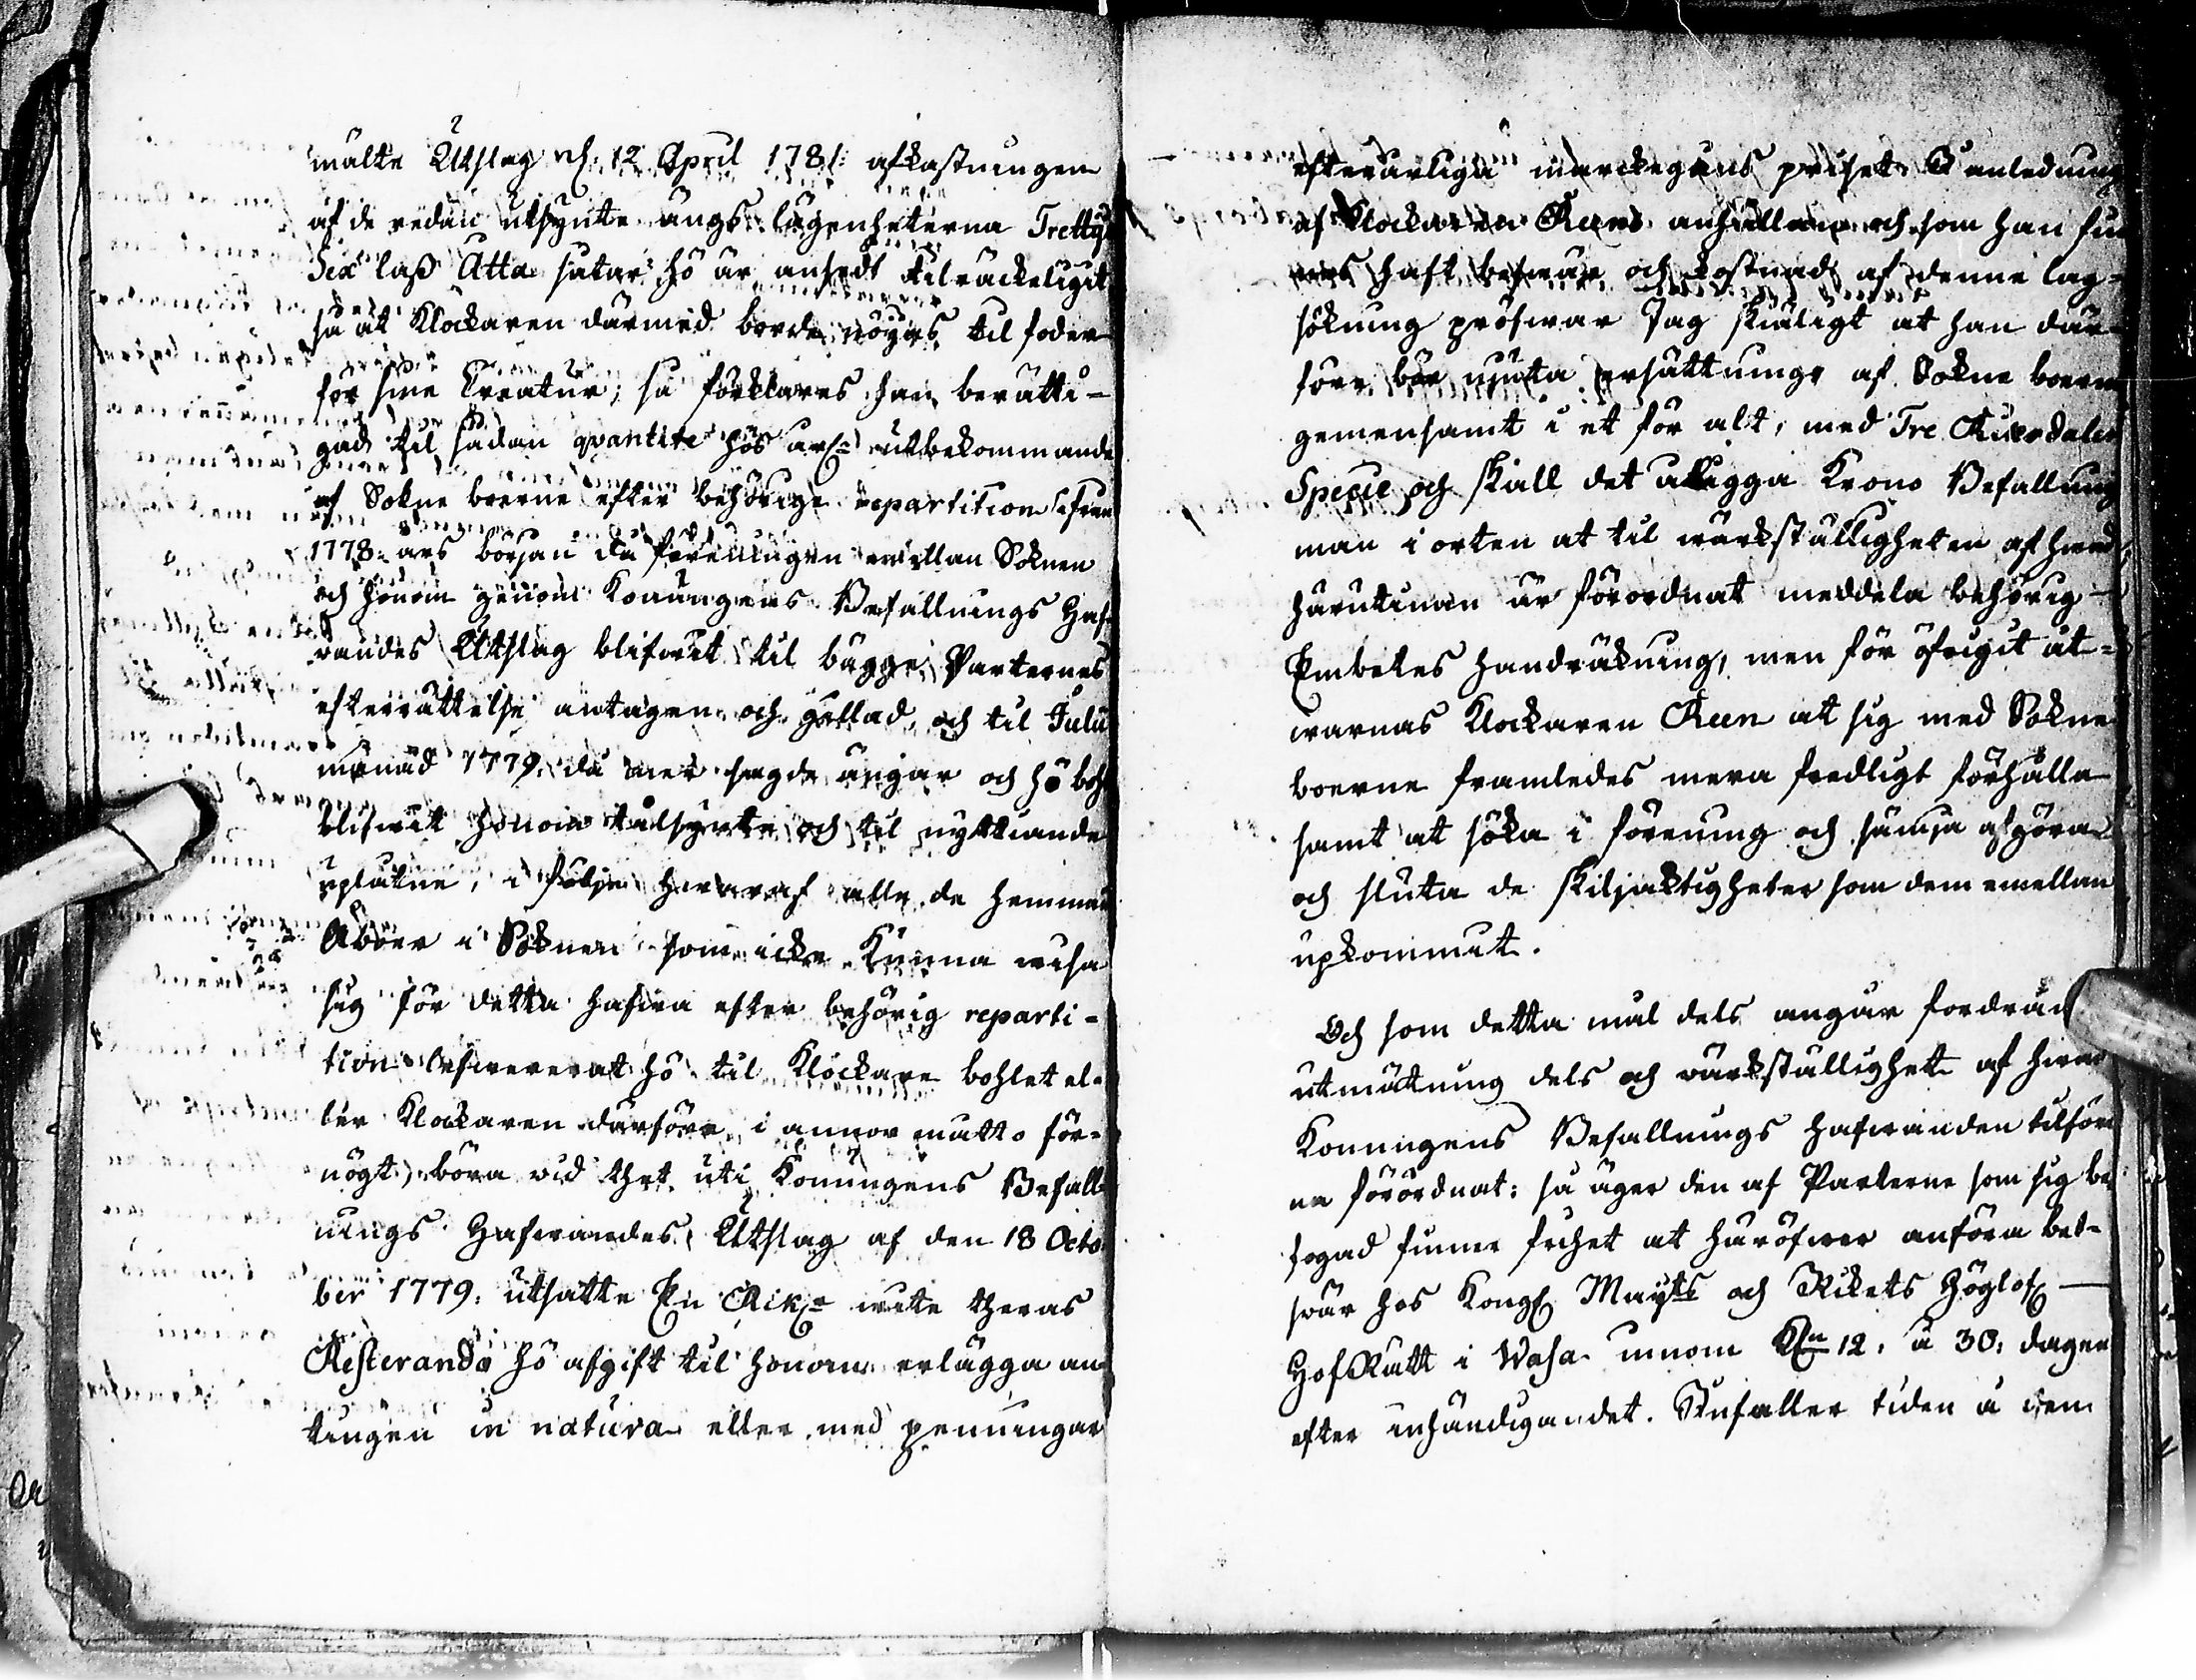 mälte Utslag d. 12 April 1781: afkastningen
af de redan utsynte ängs lägenheterna Trettÿ
Sex laß Åtta såtar hö är ansedt tilräckeligit
så at Klockaren därmed borde nöges til foder
för sine Creatur; så förklares han berätti-
gad til sådan qvantite hös årl. utbekommande
af Sokne boerne efter behörige repartition ifrån
1778: års början då föreningen emellan Soknen
och honom genom Konungens Befallnings Haf-
vandes Utslag blifvit til bägge Parternes
efterrättelse antagen och gillad, och til Julii
månad 1779. då mer sagde ängar och hö bohl
blifvit honom tilsynte och til nyttiande
uplåtne, i följe hwaraf alle de hemmans
Åboer i Soknen som icke Kunna wisa
sig för detta hafwa efter behörig reparti-
tion lefwererat hö til Klockare bohlet el-
ler Klockaren därföre i annor måtto för-
nögt, böra vid thet uti Konungens Befall-
nings Hafwandes Utslag af den 18 Octo-
ber 1779: utsatte En Rikr wite theras
Resterande hö afgift til honom erlägga an-
tingen in natura eller med penningar
efter årliga marckegångs priset. I anledning
af Klockaren Reens anhållan och som han fun-
nes haft beswär och kostnad af denne lag-
sökning pröfwar Jag skiäligt at han där-
före bör njuta ersättning af Sokne boerne
gemensamt i et för alt, med Tre Riksdaler
Specie och skall det åligga Krono Befallnings
man i orten at til wärkställigheten af hwad
härutinnan är förordnat meddela behörig
Embetes handräkning, men för öfrigit åt-
warnas Klockaren Reen at sig med Sokne
boerne framledes mera fredligt förhålla
samt at söka i förening och sämja afgöra
och sluta de skiljaktigheter som dem emellan
upkommit.
Och som detta mål dels angår fordran
utmätning dels och värkställighet af hwad
Konungens Befallnings hafwanden tilföre-
ne förordnat: så äger den af Parterne som sig be-
fogad finner frihet at häröfwer anföra bes-
wär hos Kongl Mayts och Rikets Höglofl
HofRätt i Wasa innom Kln 12. å 30: dagen
efter inhändigandet. Infaller tiden å den